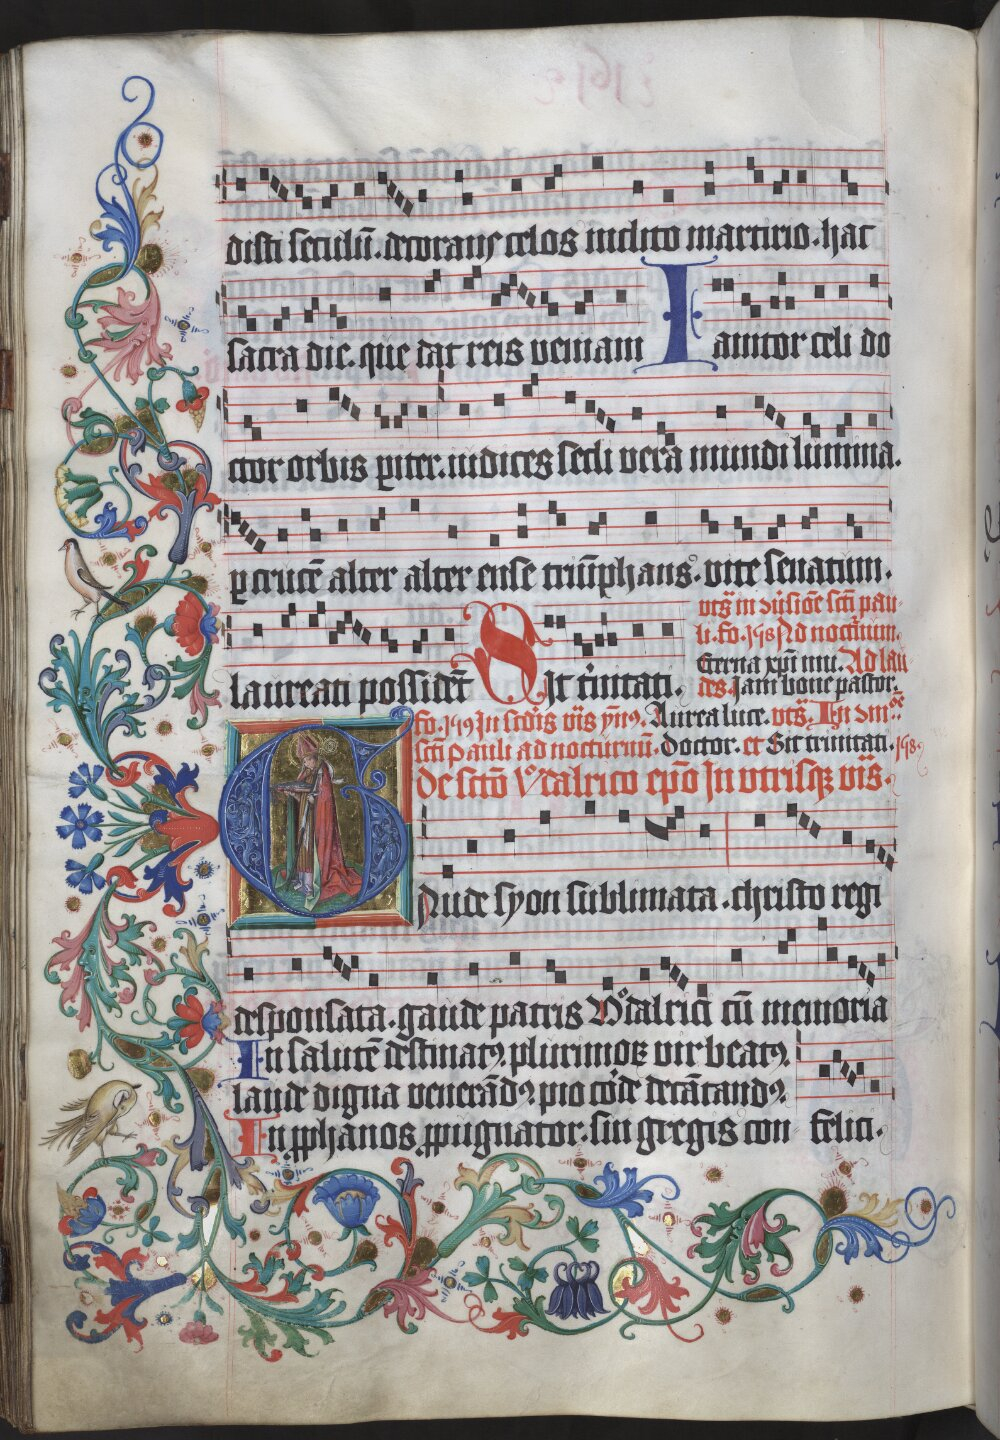 disti seculū. decorans celos inclito martirio. hac
sacra die. que dat reis veniam Ianitor celi do
ctor orbis pariter. iudices secli vera mundi lumina.
per crucē alter alter ense triūphans. vite senatum.
laureati possidēt Sit tinitati.
vts in diuisiōe scti pau-
li. fo. 158 Ad nocturnum.
Eterna xpi mu. Ad lau-
des. Iam bone pastor.
fo. 149 In scdis vis yms. Aurea luce. vts.
scti pauli ad nocturnū. Doctor. et Sit trinitati. 158
De sctō Vdalrico epō In vtrisqz vis.
Gaude syon sublimata. christo regi
desponsata. gaude patris Vdalrici cū memoria
In salutē destinatꝯ. plurimoꝝ vir beatꝯ.
laude digna venerādꝯ. pio corde decātandꝯ.
In pphanos ppugnator. sui gregis con felici.